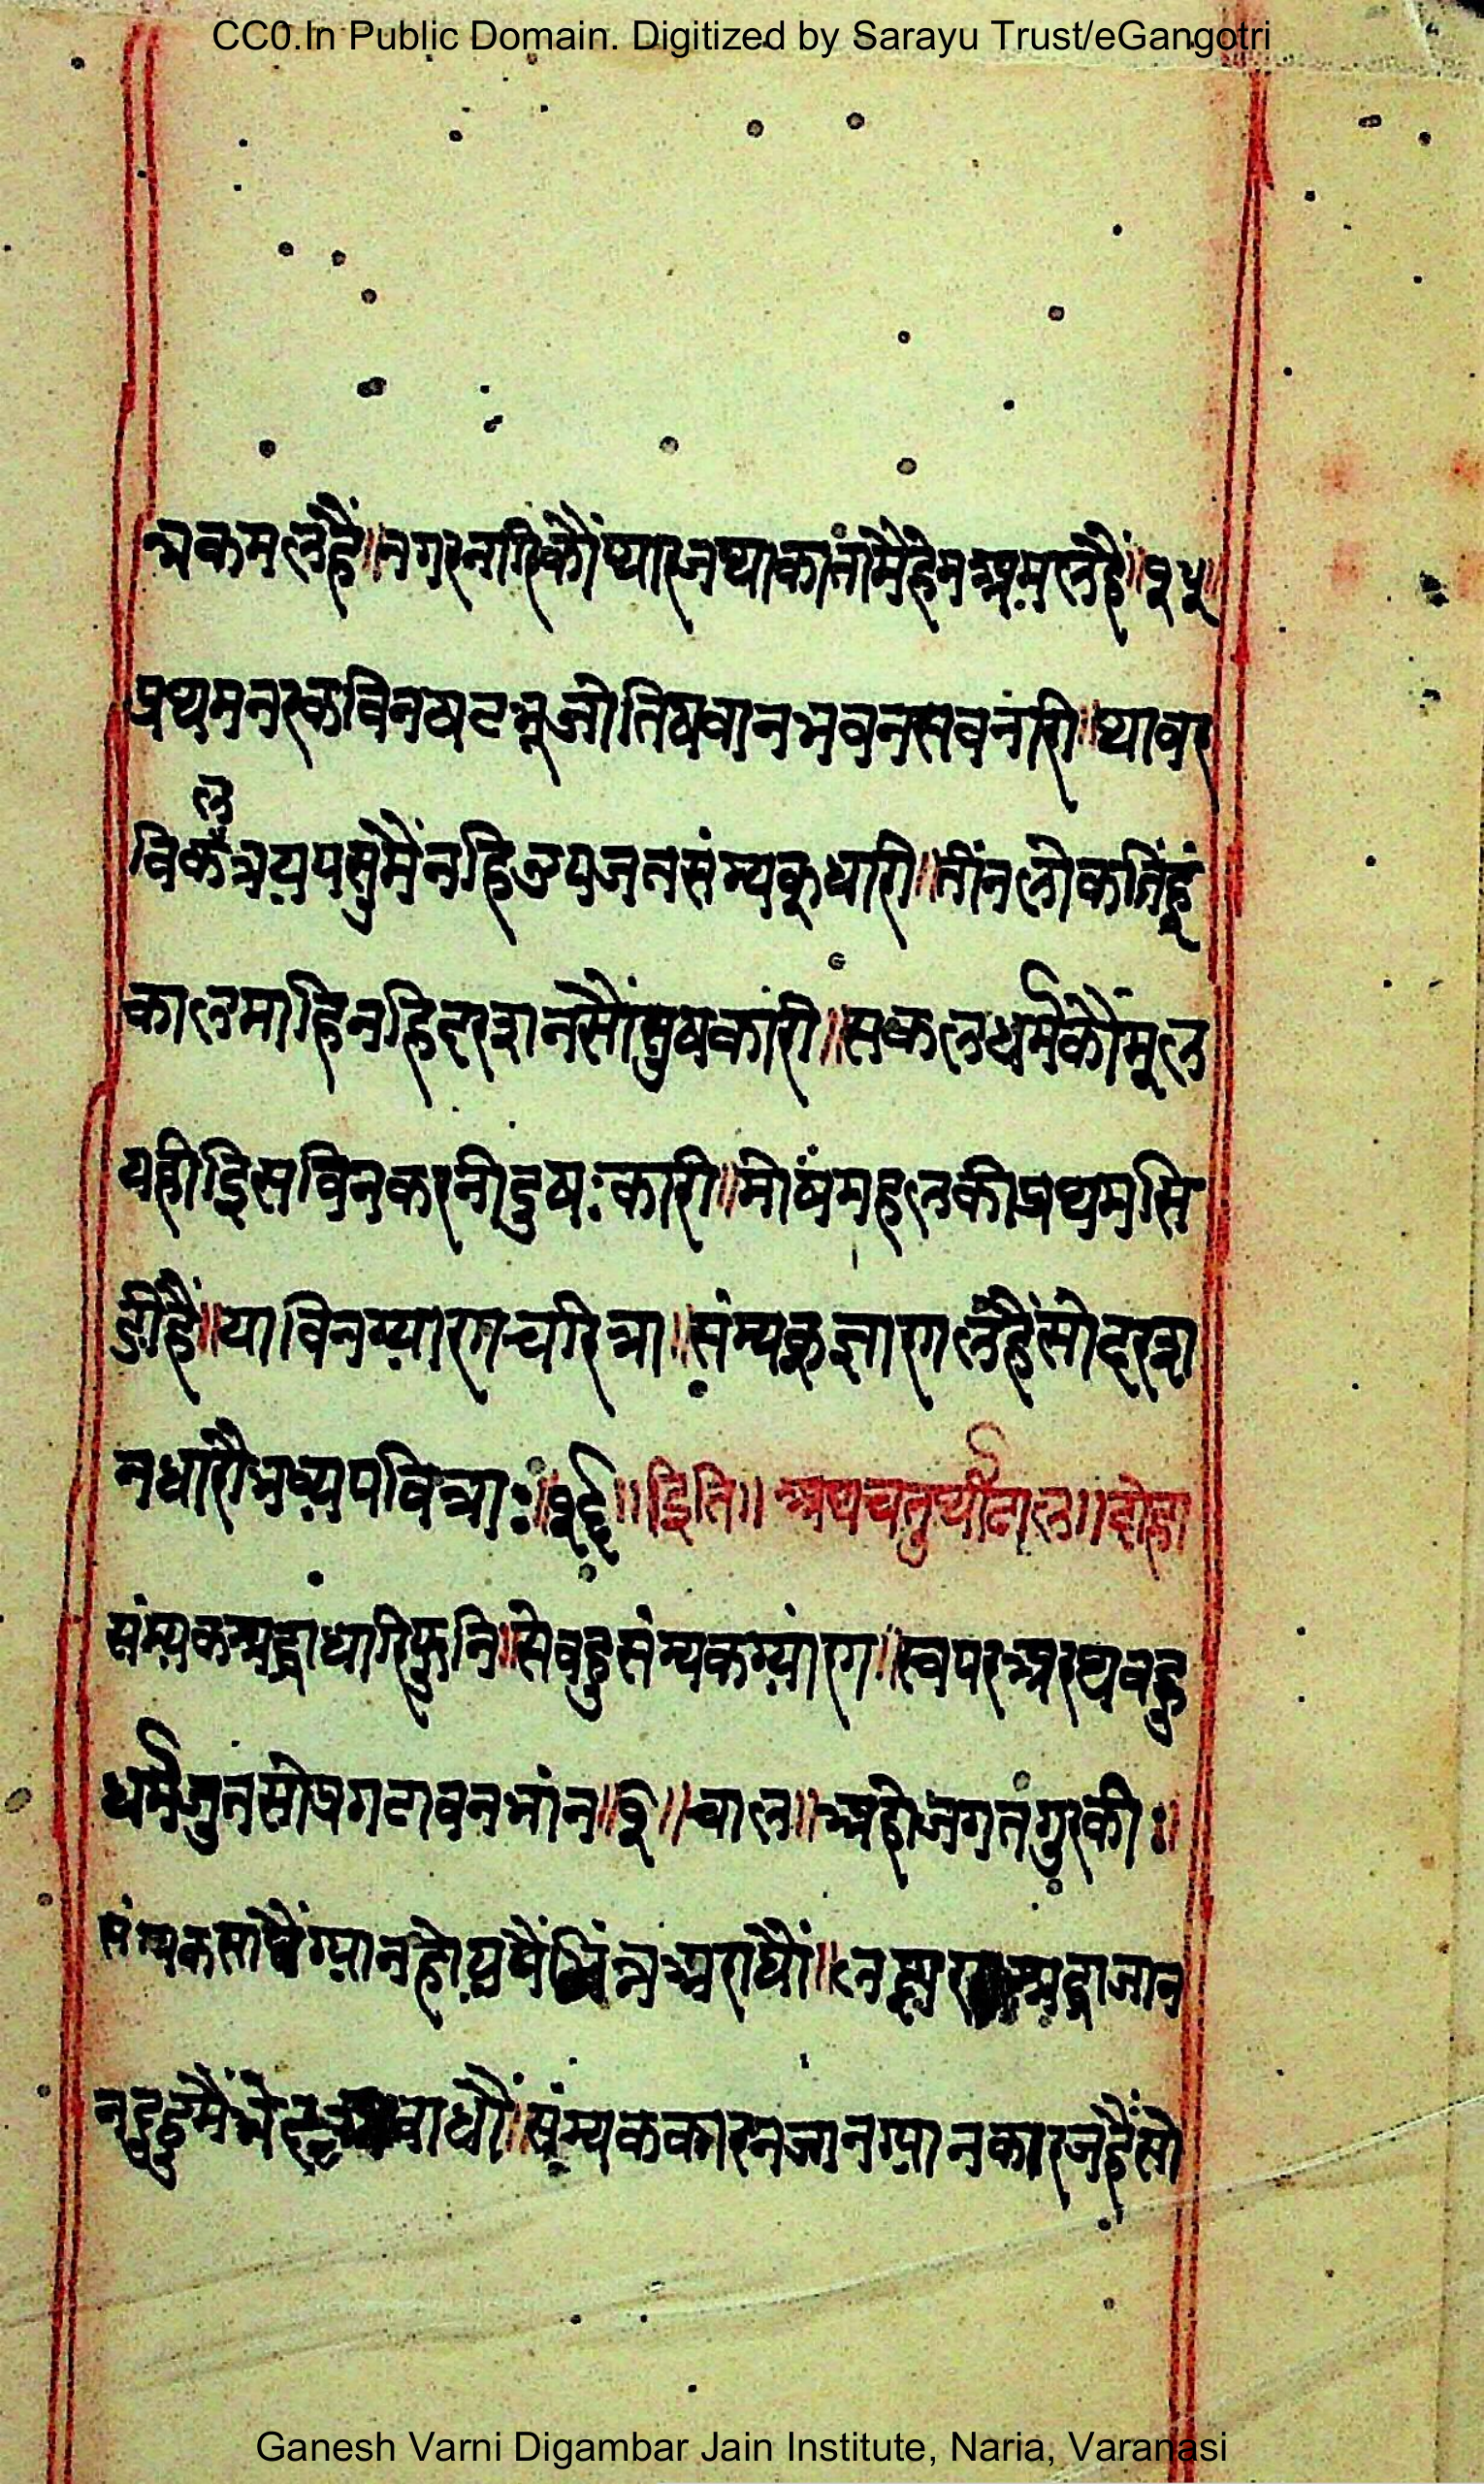 CC0.In Public Domain. Digitized by Sarayu Trust/eGangotri
न्नकमलहैं॥नगरनारिकौंप्यारजथाकांनामैंहेमअमलहैं॥१५॥
प्रथमनरकविनषटभूजोतिषवानभवनसवनारी॥थावर
विकलत्रयपसुमैंनहिउपजनसंम्यकधारी॥तींनलोकतिंहूं
कालमाहिनहिदरशनसौंसुषकारी॥सकलधर्मकौंमूल
यहीइिसविनकरनीदुषःकारी॥मोषंमहलकीप्रथमसि
डीहैं॥याविनग्यारगचरित्रा॥संम्यक्ज्ञारगलहैंसोदरश
नधारौभव्यपवित्राः॥१६॥इिति॥अथचतुर्थीढाल॥दोहा
संम्यकश्रद्धाधारिफुनि॥सेवहुसंम्यकग्यांरग॥स्वपरअरथवहु
धर्मजुनसोप्रगटावनभांन॥१॥चाल॥अहोजगतगुरकीः॥
संम्यकसाथैंग्यानहोयपैंभिंन्नअराधौं॥लक्षरश्रद्धाजान
नहूदुमैंभे वाधौं॥संम्यककारनजानग्यानकारजहैंसो
Ganesh Varni Digambar Jain Institute, Naria, Varanasi